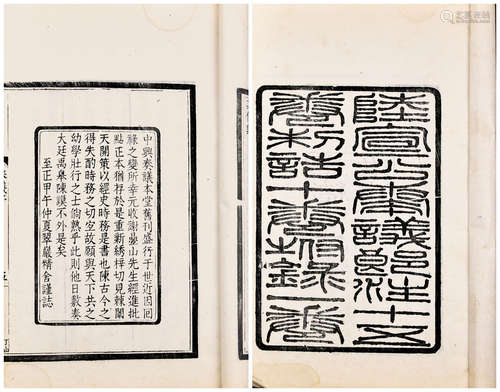 陸宣公奏議十五
卷制誥十卷錄一卷
中興奏議本堂舊刊盛行于世近因回
祿之變所幸元收謝疊山先生經進批
點正本猶存於是重新綉梓切見棘闈
天開策以經史時務是書也陳古今之
得失酌時務之切宜故願與天下共之
幼學壯行之士倘熟乎此則他日敷奏
大廷禹皋陳謨不外是矣
至正甲午仲夏翠巖精舍謹誌